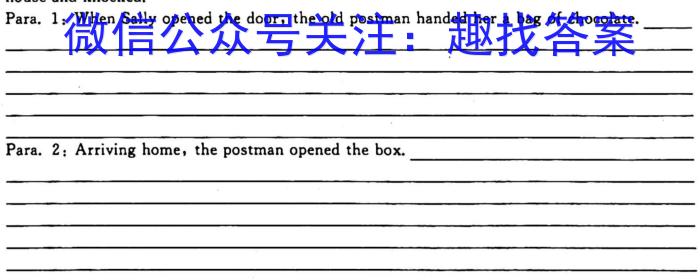 house and knocked.
Para. 1: When Sally opened the door, the old postman handed her a bag of chocolate.
微信公众号关注：趣找答案
Para. 2: Arriving home, the postman opened the box.